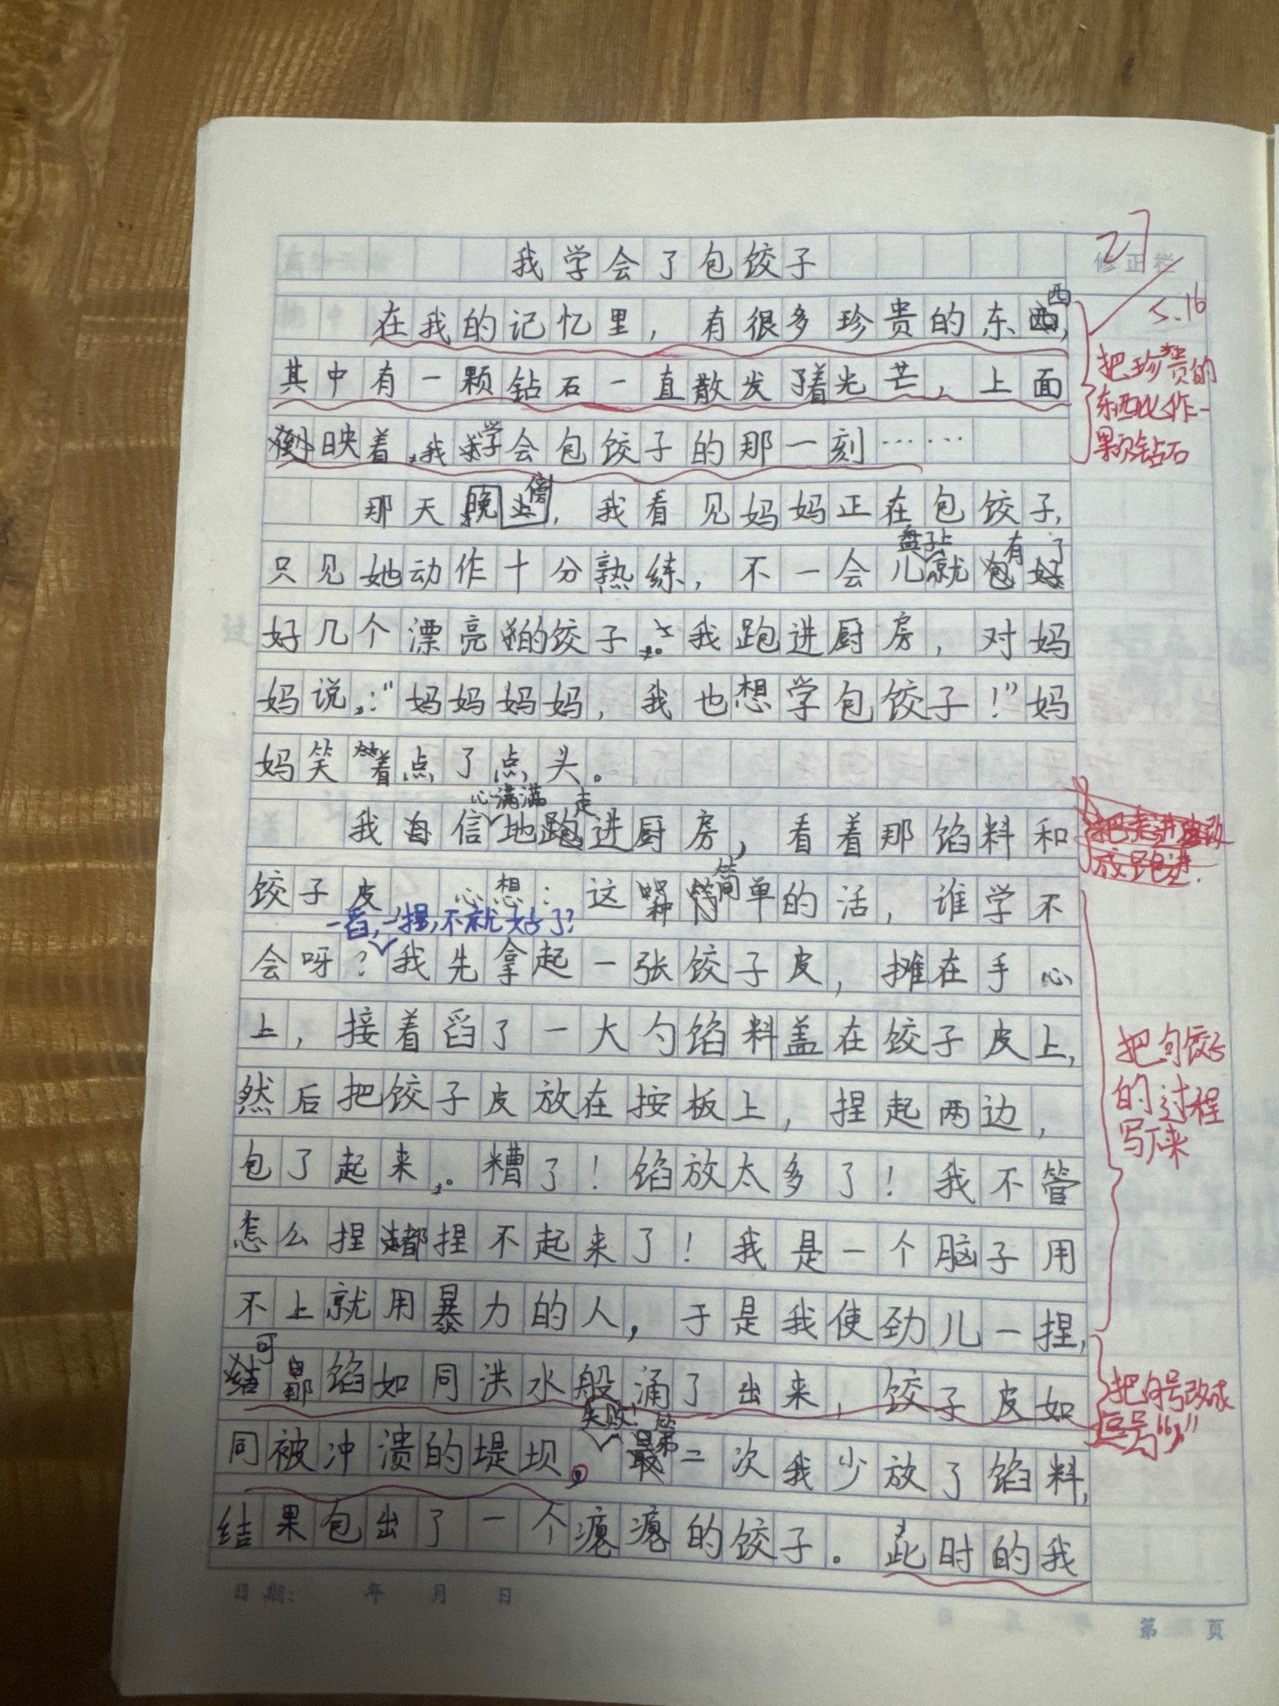 我学会了包饺子
27
修正栏
5.16
在我的记忆里，有很多珍贵的东西，
其中有一颗钻石一直散发着光芒，上面
倒映着，我学会包饺子的那一刻……
把珍贵的
东西比作一
颗钻石
那天晚上，我看见妈妈正在包饺子，
盘子上 有了
只见她动作十分熟练，不一会儿就
好几个漂亮的饺子。我跑进厨房，对妈
妈说：“妈妈妈妈，我也想学包饺子！”妈
妈笑着点了点头。
心满满 走
我自信地跑进厨房，看着那馅料和
把走进改
成跑进.
饺子皮 心想：这种简单的活，谁学不
一舀，一捏，不就好了？
会呀？我先拿起一张饺子皮，摊在手心
上，接着舀了一大勺馅料盖在饺子皮上，
然后把饺子皮放在按板上，捏起两边，
包了起来。糟了！馅放太多了！我不管
怎么捏都捏不起来了！我是一个脑子用
不上就用暴力的人，于是我使劲儿一捏，
把包饺子
的过程
写下来
可那馅如同洪水般涌了出来，饺子皮如
失败！
同被冲溃的堤坝，第二次我少放了馅料，
把句号改成
逗号“，”
结果包出了一个瘪瘪的饺子。此时的我
日期： 年 月 日
第 页